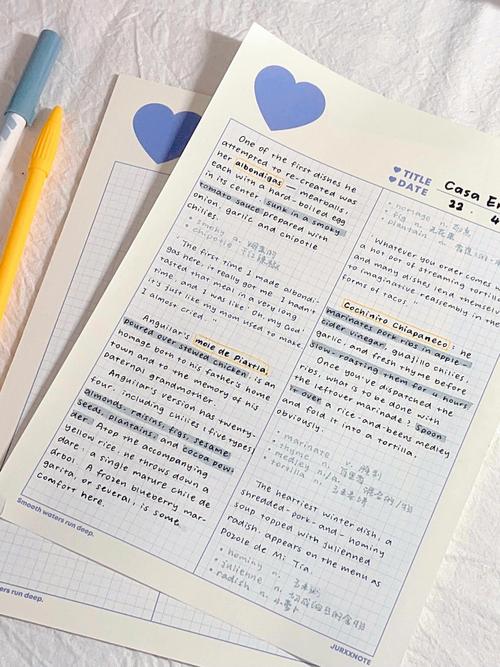 One of the first dishes he
attempted to re-created was
her albondigas - meatballs,
each with a hard-boiled egg
in its center, sunk in a smoky
tomato sauce prepared with
onion, garlic and chipotle
chilies.
• smoky a.
• chipotle n.
The first time I made albondi-
gas here, it really got me. I hadn't
tasted that meal in a very long
time, and I was like: Oh, my God,
it's just like my mom used to make.
I almost cried."
Anguilar's mole de Piaxtla,
poured over stewed chicken, is an
homage both to his father's home
town and to the memory of his
paternal grandmother.
Anguilar's version has twenty-
four, including chilies (five types),
almonds, raisins, figs, sesame
seeds, plantains, and cocoa pow-
der. Atop the accompanying
yellow rice, he throws down a
dare: a single mature chile de
árbol. A frozen blueberry mar-
garita, or several, is some
comfort here.
Smooth waters run deep.
TITLE
DATE
Casa
22 . 4
• homage n.
• fig n. 无花果
• plantain n.
"Whatever you order comes
a hot pot of streaming tortil
and many dishes lend themselve
to imaginative reassembly in th
forms of tacos."
Cochinito Chiapaneco: he
marinates pork ribs in apple-
cider vinegar, guajillo chilies,
garlic, and fresh thyme before
slow-roasting them for 4 hours
Once you've dispatched the
ribs, what is to be done with
the leftover marinade? spoon
it over a rice-and-beans medley
and fold it into a tortilla,
obviously.
• marinate v. 腌制
• thyme n. 百里香
• medley n./a.
• tortilla n.
The heartiest winter dish, a
shredded-pork-and-hominy
soup topped with julienned
radish, appears on the menu as
Pozole de Mi Tía.
• hominy n. 玉米粥
• julienne n.
• radish n. 小萝卜
JURXXNOTE
ers run deep.